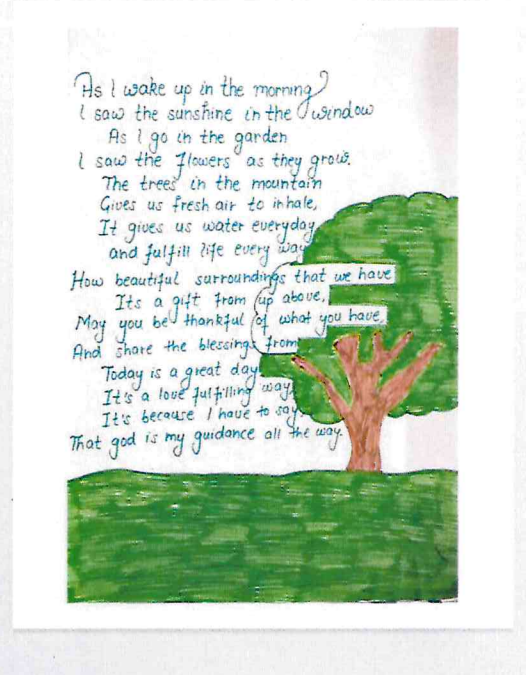 As I wake up in the morning
I saw the sunshine in the window
As I go in the garden
I saw the flowers as they grow.
The trees in the mountain
Gives us fresh air to inhale,
It gives us water everyday
and fulfill life every way
How beautiful surroundings that we have
Its a gift from up above,
May you be thankful of what you have,
And share the blessings from
Today is a great day.
It's a love fulfilling way,
It's because I have to say.
That god is my guidance all the way.